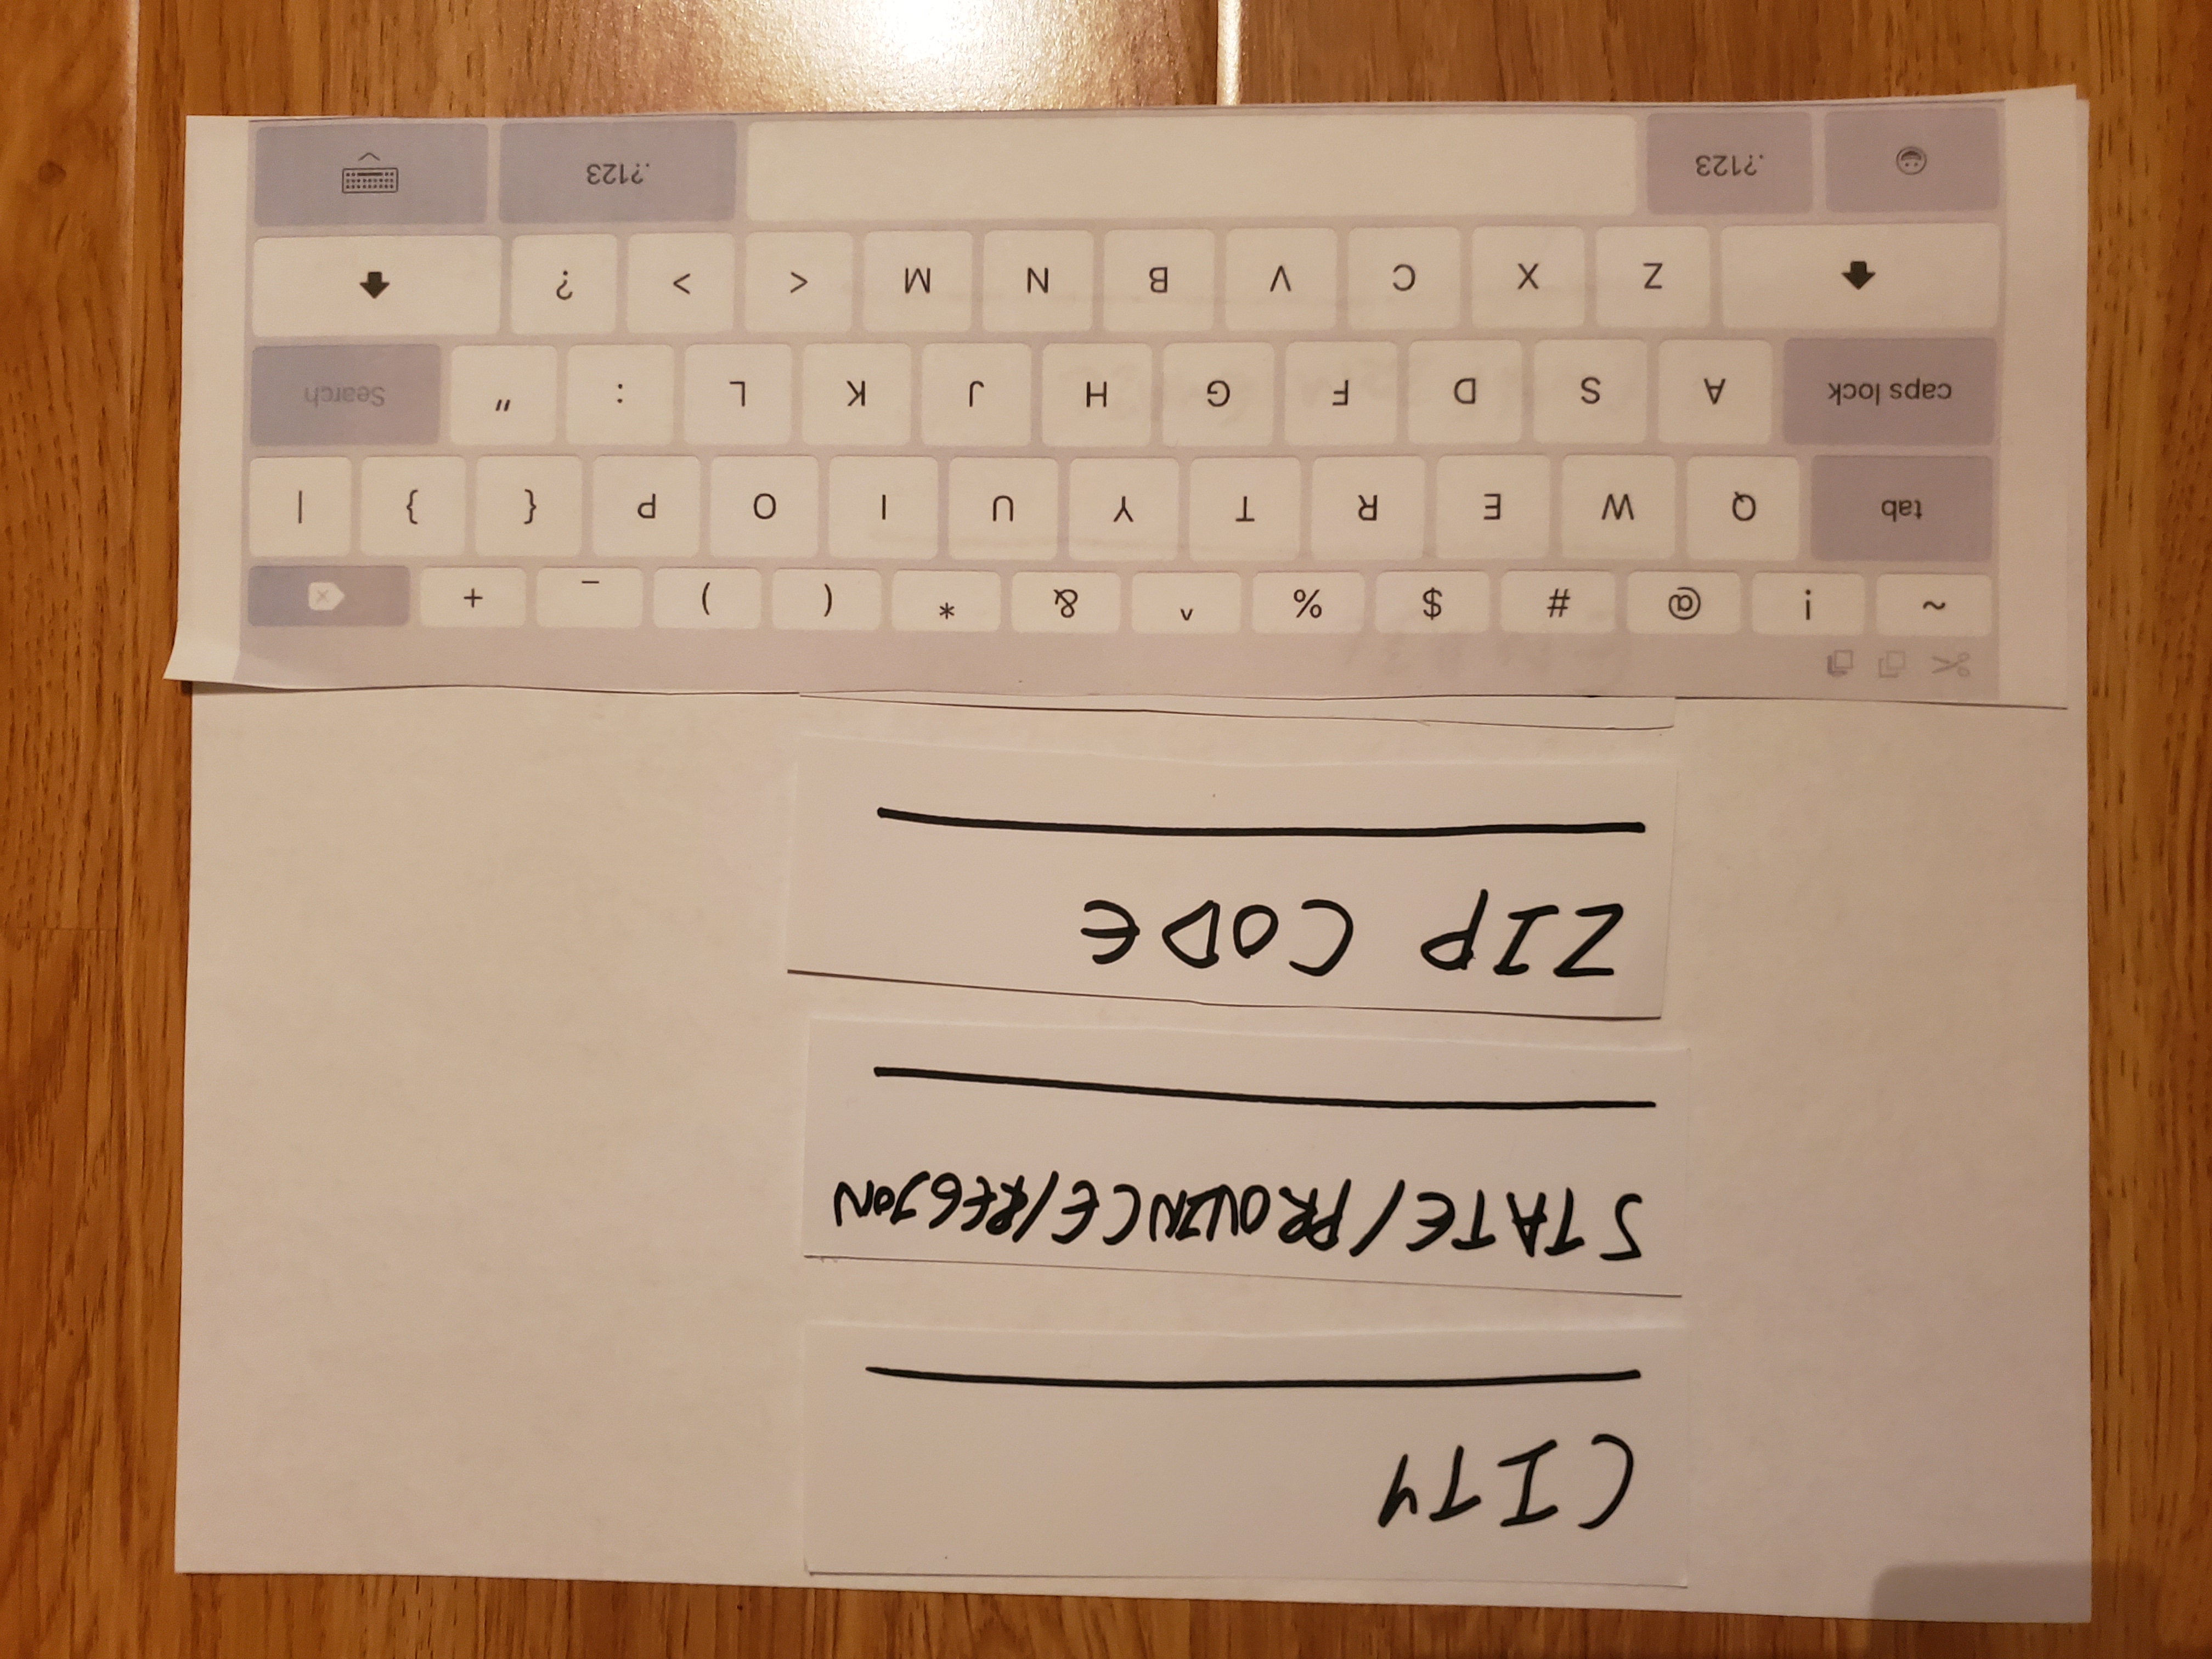 CITY
STATE/PROVINCE/REGION
ZIP CODE
~ ! @ # $ % ^ & * ( ) _ +
tab Q W E R T Y U I O P { } |
caps lock A S D F G H J K L : " Search
Z X C V B N M < > ?
.?123 .?123